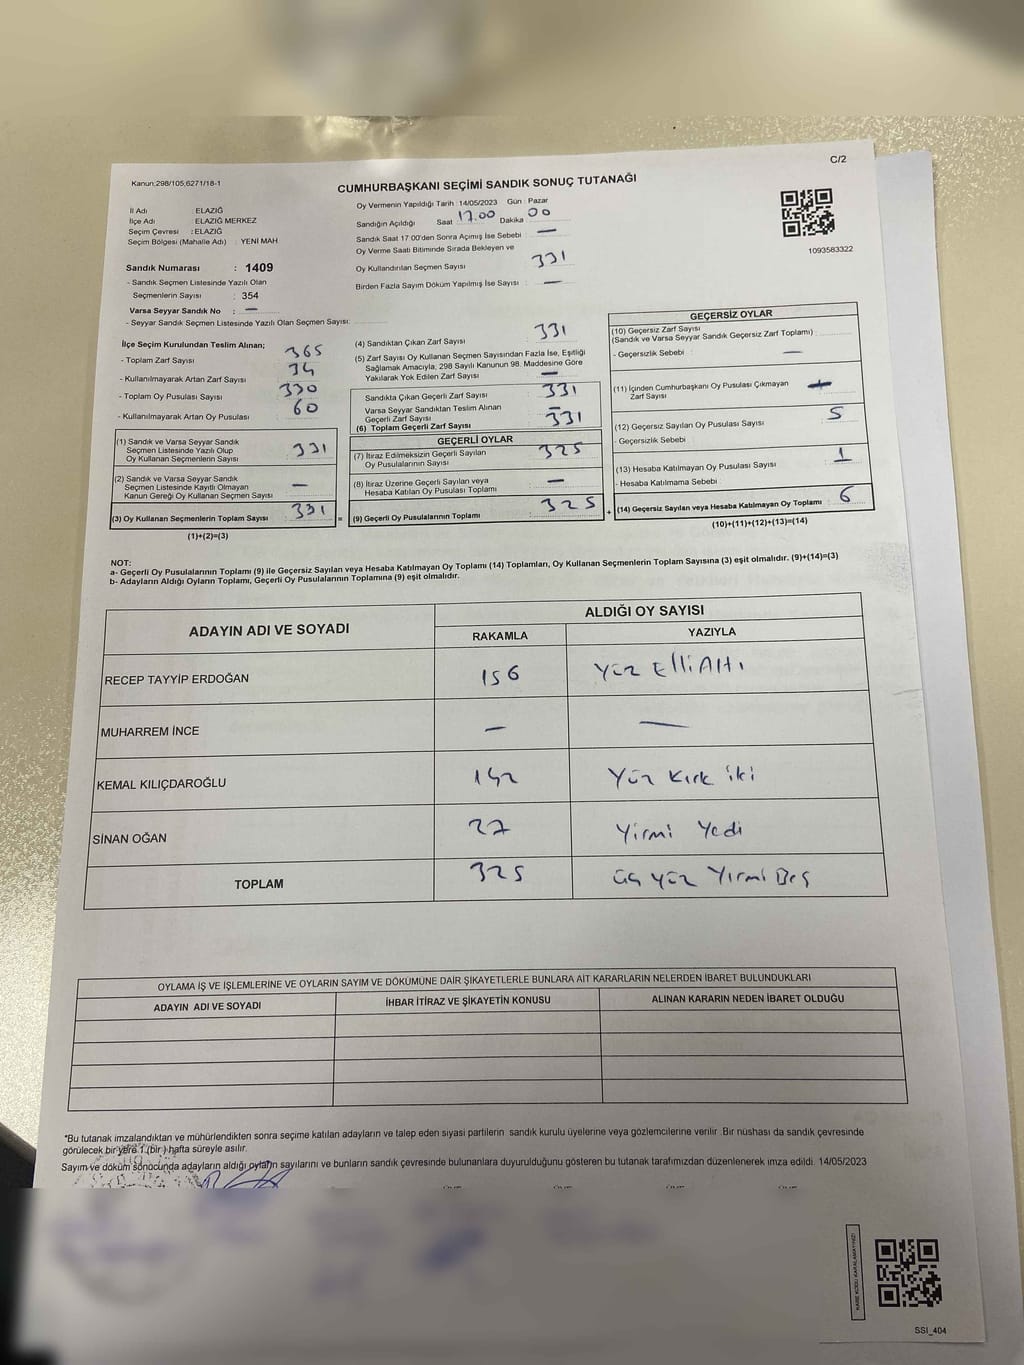 C/2
Kanun:298/105,6271/18-1
CUMHURBAŞKANI SEÇİMİ SANDIK SONUÇ TUTANAĞI
İl Adı : ELAZIĞ
İlçe Adı : ELAZIĞ MERKEZ
Seçim Çevresi : ELAZIĞ
Seçim Bölgesi (Mahalle Adı) : YENİ MAH
Sandık Numarası : 1409
- Sandık Seçmen Listesinde Yazılı Olan
Seçmenlerin Sayısı : 354
Varsa Seyyar Sandık No : —
- Seyyar Sandık Seçmen Listesinde Yazılı Olan Seçmen Sayısı:
Oy Vermenin Yapıldığı Tarih :14/05/2023 Gün : Pazar
Sandığın Açıldığı Saat 17.00 Dakika 00
Sandık Saat 17:00'den Sonra Açımış İse Sebebi : —
Oy Verme Saati Bitiminde Sırada Bekleyen ve
Oy Kullandırılan Seçmen Sayısı : 331
Birden Fazla Sayım Döküm Yapılmış İse Sayısı : —
1093583322
İlçe Seçim Kurulundan Teslim Alınan;
- Toplam Zarf Sayısı : 365
- Kullanılmayarak Artan Zarf Sayısı : 34
- Toplam Oy Pusulası Sayısı : 330
- Kullanılmayarak Artan Oy Pusulası : 60
(1) Sandık ve Varsa Seyyar Sandık
Seçmen Listesinde Yazılı Olup
Oy Kullanan Seçmenlerin Sayısı : 331
(2) Sandık ve Varsa Seyyar Sandık
Seçmen Listesinde Kayıtlı Olmayan
Kanun Gereği Oy Kullanan Seçmen Sayısı : —
(3) Oy Kullanan Seçmenlerin Toplam Sayısı : 331
(1)+(2)=(3)
(4) Sandıktan Çıkan Zarf Sayısı : 331
(5) Zarf Sayısı Oy Kullanan Seçmen Sayısından Fazla İse, Eşitliği
Sağlamak Amacıyla, 298 Sayılı Kanunun 98. Maddesine Göre
Yakılarak Yok Edilen Zarf Sayısı : —
Sandıkta Çıkan Geçerli Zarf Sayısı : 331
Varsa Seyyar Sandıktan Teslim Alınan
Geçerli Zarf Sayısı : —
(6) Toplam Geçerli Zarf Sayısı : 331
GEÇERLİ OYLAR
(7) İtiraz Edilmeksizin Geçerli Sayılan
Oy Pusulalarının Sayısı : 325
(8) İtiraz Üzerine Geçerli Sayılan veya
Hesaba Katılan Oy Pusulası Toplamı : —
= (9) Geçerli Oy Pusulalarının Toplamı : 325
GEÇERSİZ OYLAR
(10) Geçersiz Zarf Sayısı
(Sandık ve Varsa Seyyar Sandık Geçersiz Zarf Toplamı) :
- Geçersizlik Sebebi : —
(11) İçinden Cumhurbaşkanı Oy Pusulası Çıkmayan
Zarf Sayısı :
(12) Geçersiz Sayılan Oy Pusulası Sayısı : 5
- Geçersizlik Sebebi :
(13) Hesaba Katılmayan Oy Pusulası Sayısı : 1
- Hesaba Katılmama Sebebi :
+ (14) Geçersiz Sayılan veya Hesaba Katılmayan Oy Toplamı : 6
(10)+(11)+(12)+(13)=(14)
NOT:
a- Geçerli Oy Pusulalarının Toplamı (9) ile Geçersiz Sayılan veya Hesaba Katılmayan Oy Toplamı (14) Toplamları, Oy Kullanan Seçmenlerin Toplam Sayısına (3) eşit olmalıdır. (9)+(14)=(3)
b- Adayların Aldığı Oyların Toplamı, Geçerli Oy Pusulalarının Toplamına (9) eşit olmalıdır.
ADAYIN ADI VE SOYADI ALDIĞI OY SAYISI
RAKAMLA YAZIYLA
RECEP TAYYİP ERDOĞAN 156 Yüz Elli Altı
MUHARREM İNCE — —
KEMAL KILIÇDAROĞLU 142 Yüz Kırk iki
SİNAN OĞAN 27 Yirmi Yedi
TOPLAM 325 üç yüz Yirmi Beş
OYLAMA İŞ VE İŞLEMLERİNE VE OYLARIN SAYIM VE DÖKÜMÜNE DAİR ŞİKAYETLERLE BUNLARA AİT KARARLARIN NELERDEN İBARET BULUNDUKLARI
ADAYIN ADI VE SOYADI İHBAR İTİRAZ VE ŞİKAYETİN KONUSU ALINAN KARARIN NEDEN İBARET OLDUĞU
*Bu tutanak imzalandıktan ve mühürlendikten sonra seçime katılan adayların ve talep eden siyasi partilerin sandık kurulu üyelerine veya gözlemcilerine verilir. Bir nüshası da sandık çevresinde
görülecek bir yere 1 (bir ) hafta süreyle asılır.
Sayım ve döküm sonocunda adayların aldığı oyların sayılarını ve bunların sandık çevresinde bulunanlara duyurulduğunu gösteren bu tutanak tarafımızdan düzenlenerek imza edildi. 14/05/2023
KARE KODU KARALAMAYINIZ!
SSI_404